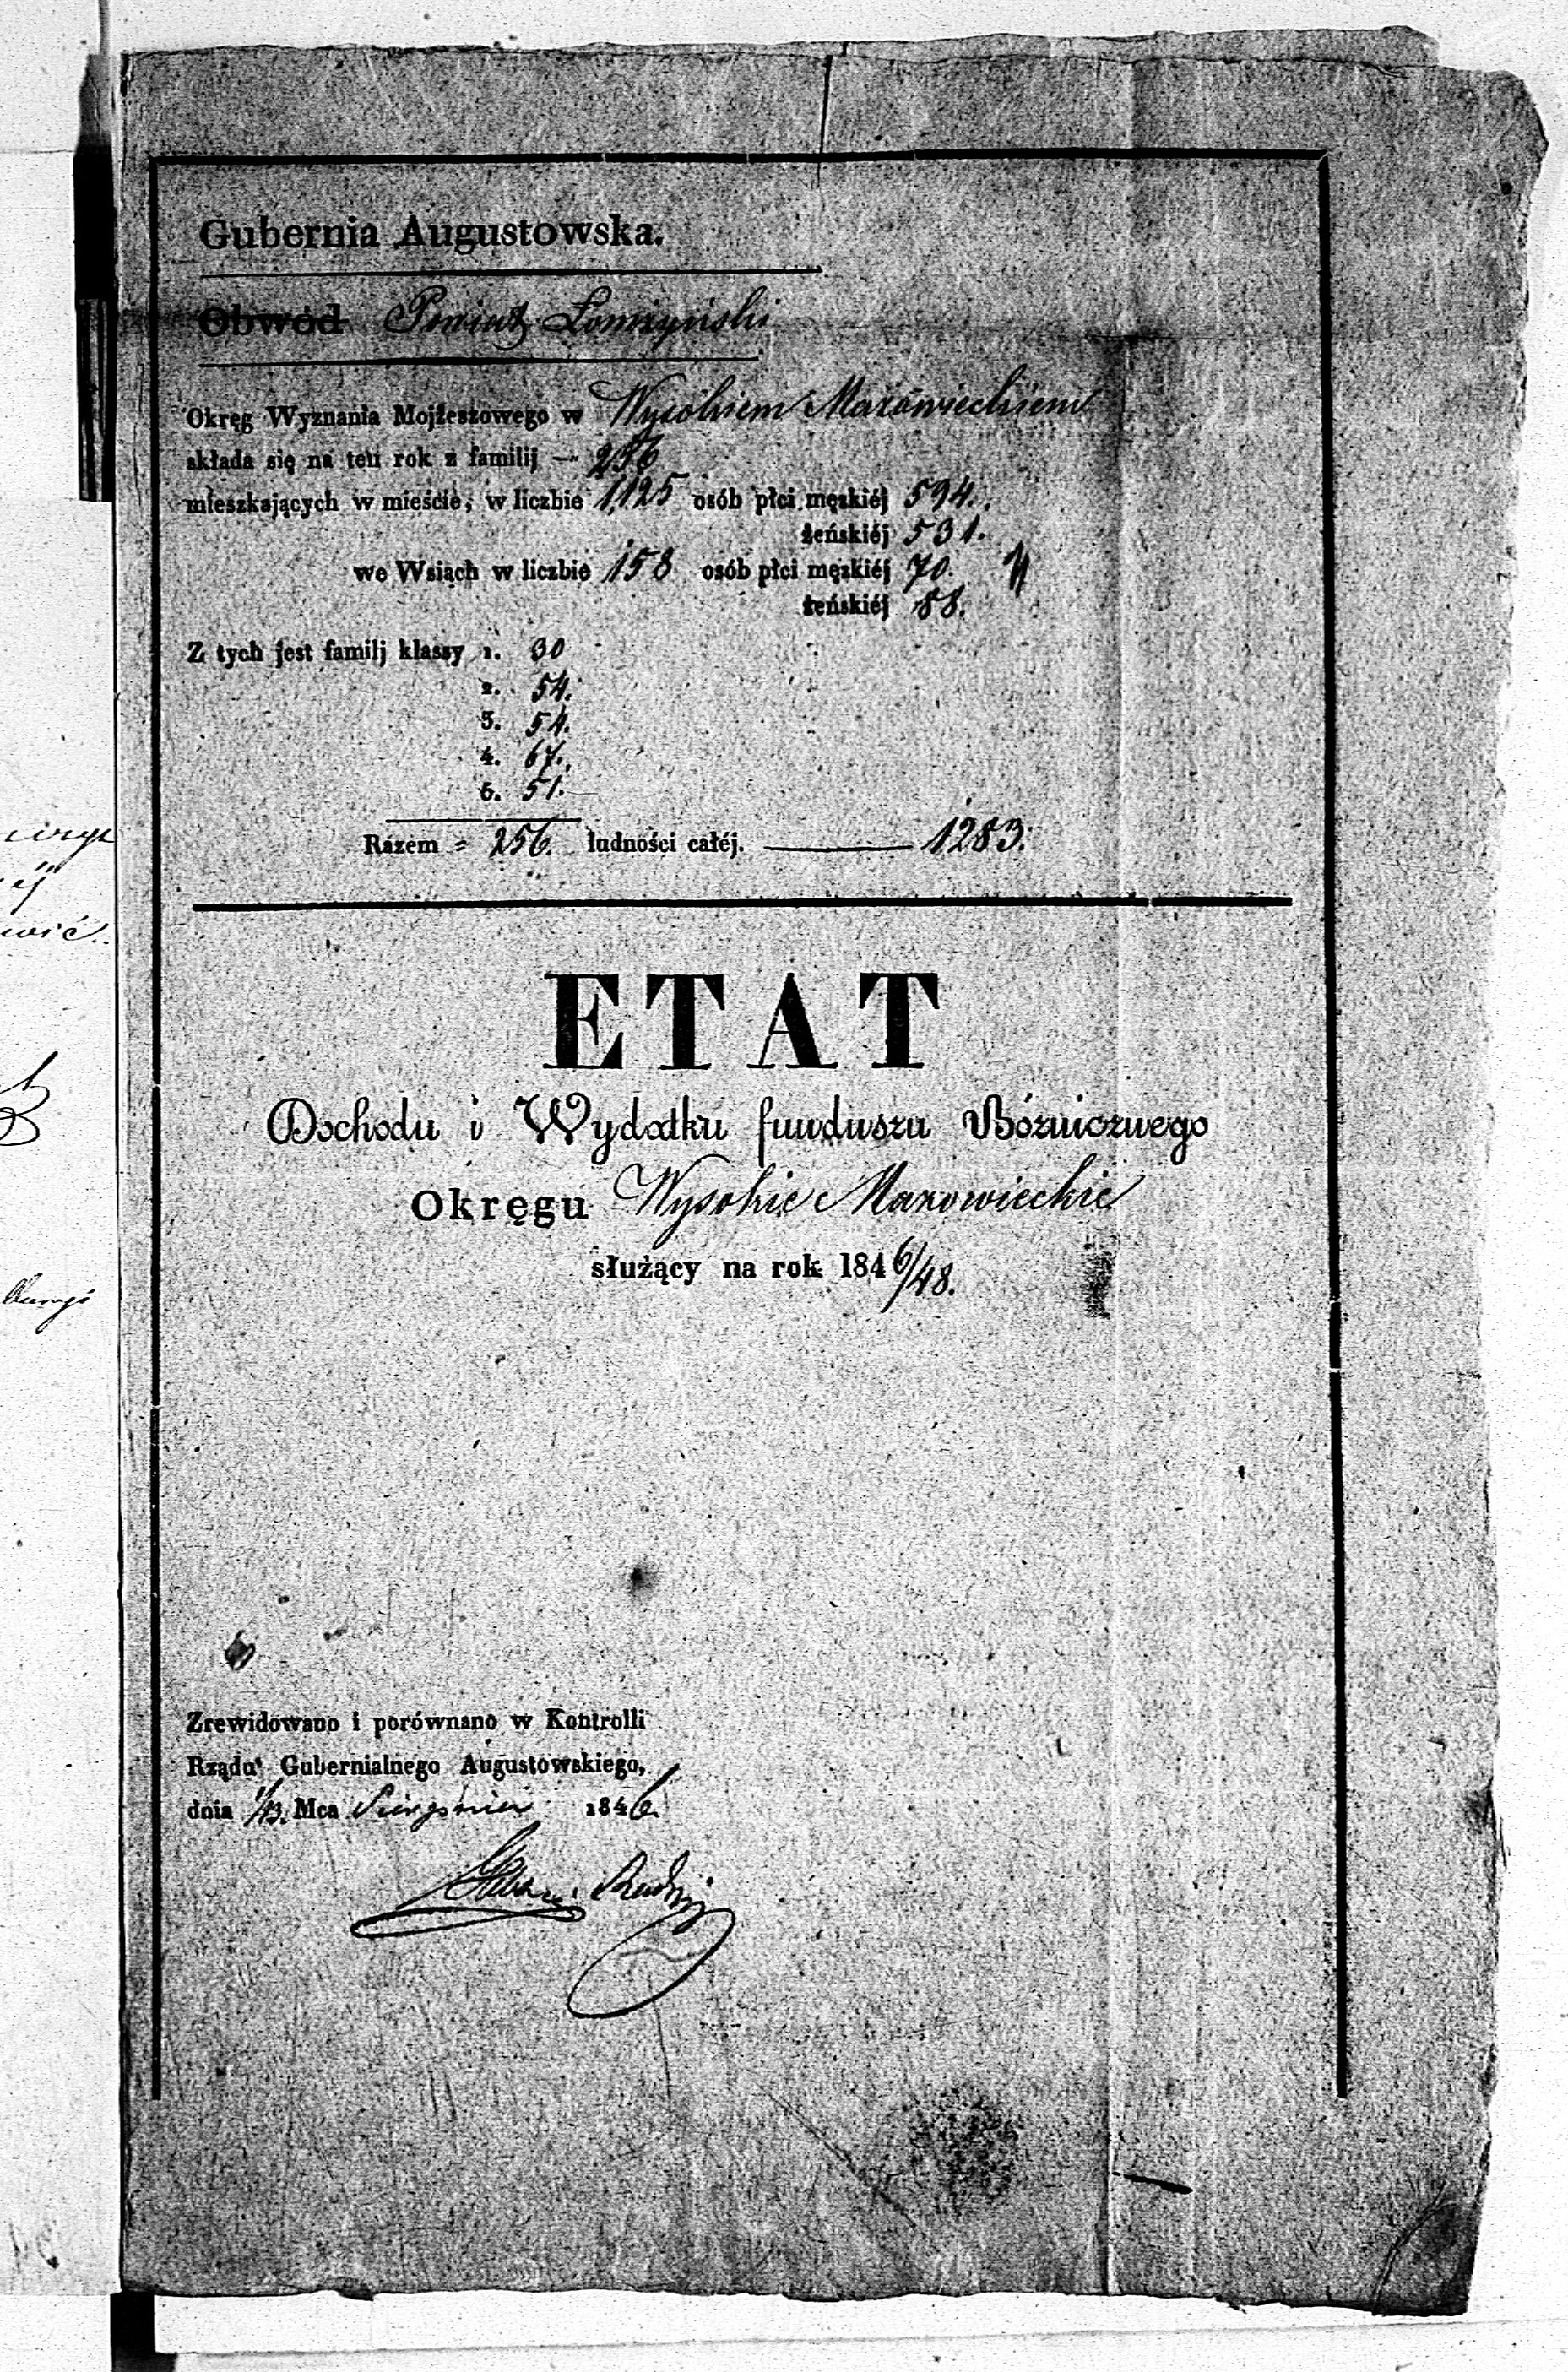 Gubernia Augustowska.
Obwód Powiat Łomżyński
Okręg Wyznania Mojżeszowego w Wysokiem Mazowieckiem
składa się na ten rok z familij — 256
mieszkających w mieście, w liczbie 1,125 osób płci męzkiéj 594.
żeńskiéj 531.
we Wsiach w liczbie 158 osób płci męzkiéj 70.
żeńskiéj 88.
Z tych jest familj klassy 1. 30
2. 54.
3. 54.
4. 67.
5. 51.
Razem = 256. ludności całéj. — 1283.
ETAT
Dochodu i Wydatku funduszu Bóżnicznego
Okręgu Wysokie Mazowieckie
służący na rok 1846/48.
Zrewidowano i porównano w Kontrolli
Rządu Gubernialnego Augustowskiego,
dnia 1/13. Mca Sierpnia 1846.